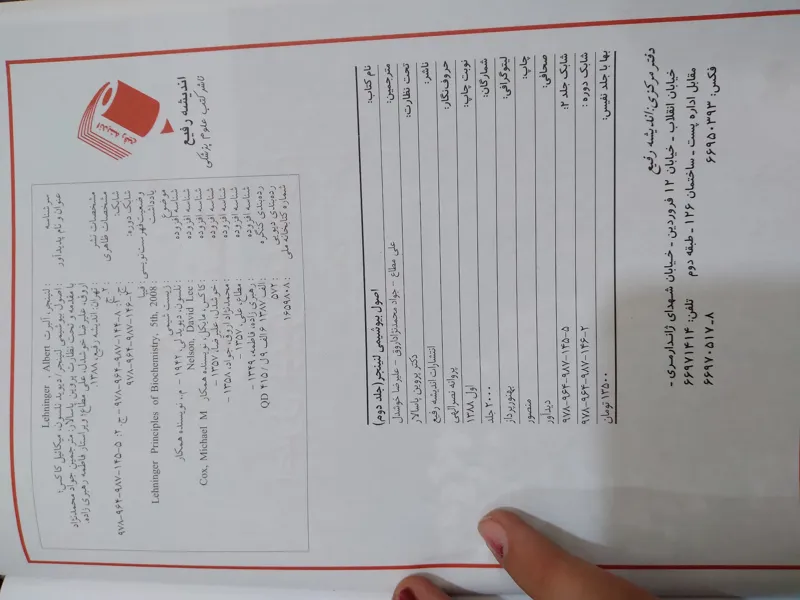 اندیشه رفیع
اندیشه رفیع
ناشر کتب علوم پزشکی
سرشناسه : لنینجر، آلبرت Lehninger , Albert
عنوان و نام پدیدآور : اصول بیوشیمی لنینجر/ دیوید نلسون، میکائیل کاکس؛
با مقدمه تحت نظارت پروین پاسالار؛ مترجمین جواد محمدنژاد
اروق، علیرضا خوشدل، علی مطاع؛ ویراستار فاطمه رهبری زاده.
مشخصات نشر : تهران: اندیشه رفیع، ۱۳۸۸.
مشخصات ظاهری : ۲ ج.
شابک: ج. ۲: ۵-۱۴۵-۹۸۷-۹۶۴-۹۷۸
شابک دوره: ۲-۱۴۶-۹۸۷-۹۶۴-۹۷۸
وضعیت فهرست‌نویسی: فیپا
یادداشت : Lehninger Principles of Biochemistry, 5th, 2008
موضوع : زیست شیمی
شناسه افزوده : نلسون، دیوید لی، ۱۹۴۲ - م. نویسنده همکار
Nelson, David Lee
شناسه افزوده : کاکس، مایکل، نویسنده همکار Cox, Michael M
شناسه افزوده : خوشدل، علیرضا، ۱۳۵۷ -
شناسه افزوده : محمدنژاد اروق، جواد، ۱۳۵۸ -
شناسه افزوده : مطاع، علی، ۱۳۵۷ -
شناسه افزوده : رهبری زاده، فاطمه، ۱۳۴۹ -
رده‌بندی کنگره : QD ۴۱۵/ ل۹الف۶ ۱۳۸۷
رده‌بندی دیویی : ۵۷۲
شماره کتابخانه ملی : ۱۶۵۹۸۰۸
نام کتاب: اصول بیوشیمی لنینجر(جلد دوم)
مترجمین: علی مطاع - جواد محمدنژاداروق - علیرضا خوشدل
تحت نظارت: دکتر پروین پاسالار
ناشر: انتشارات اندیشه رفیع
حروف‌نگار: پروانه نصرالهی
نوبت چاپ: اول ۱۳۸۸
شمارگان: ۲۰۰۰ جلد
لیتوگرافی: بهنورپرداز
چاپ: منصور
صحافی: دیدآور
شابک جلد ۲: ۵-۱۴۵-۹۸۷-۹۶۴-۹۷۸
شابک دوره : ۲-۱۴۶-۹۸۷-۹۶۴-۹۷۸
بها با جلد نفیس: ۱۳۵۰۰ تومان
دفتر مرکزی:اندیشه رفیع
خیابان انقلاب - خیابان ۱۲ فروردین - خیابان شهدای ژاندارمری -
مقابل اداره پست - ساختمان ۱۲۶ - طبقه دوم تلفن: ۶۶۹۷۱۴۱۴
فکس: ۶۶۹۵۰۳۹۳ ۶۶۹۷۰۵۱۷-۸